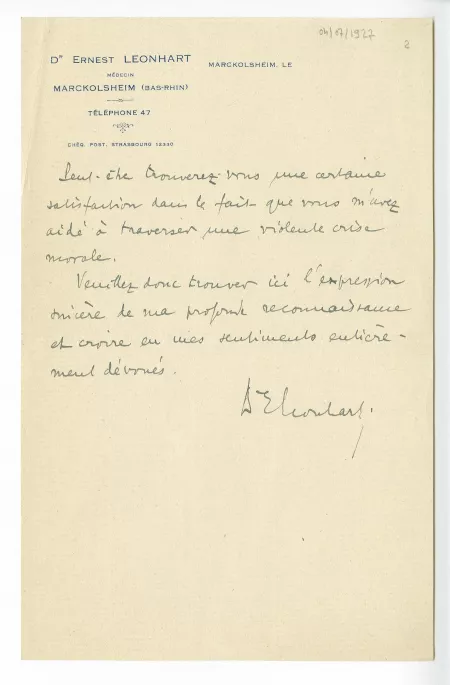 04/07/1927
2
Dr ERNEST LEONHART
MÉDECIN
MARCKOLSHEIM (BAS-RHIN)
TÉLÉPHONE 47
CHÈQ. POST. STRASBOURG 12330
MARCKOLSHEIM, LE
Peut-être trouverez-vous une certaine
satisfaction dans le fait que vous m'avez
aidé à traverser une violente crise
morale.
Veuillez donc trouver ici l'expression
sincère de ma profonde reconnaissance
et croire en mes sentiments entière-
ment dévoués.
Dr E Leonhart.